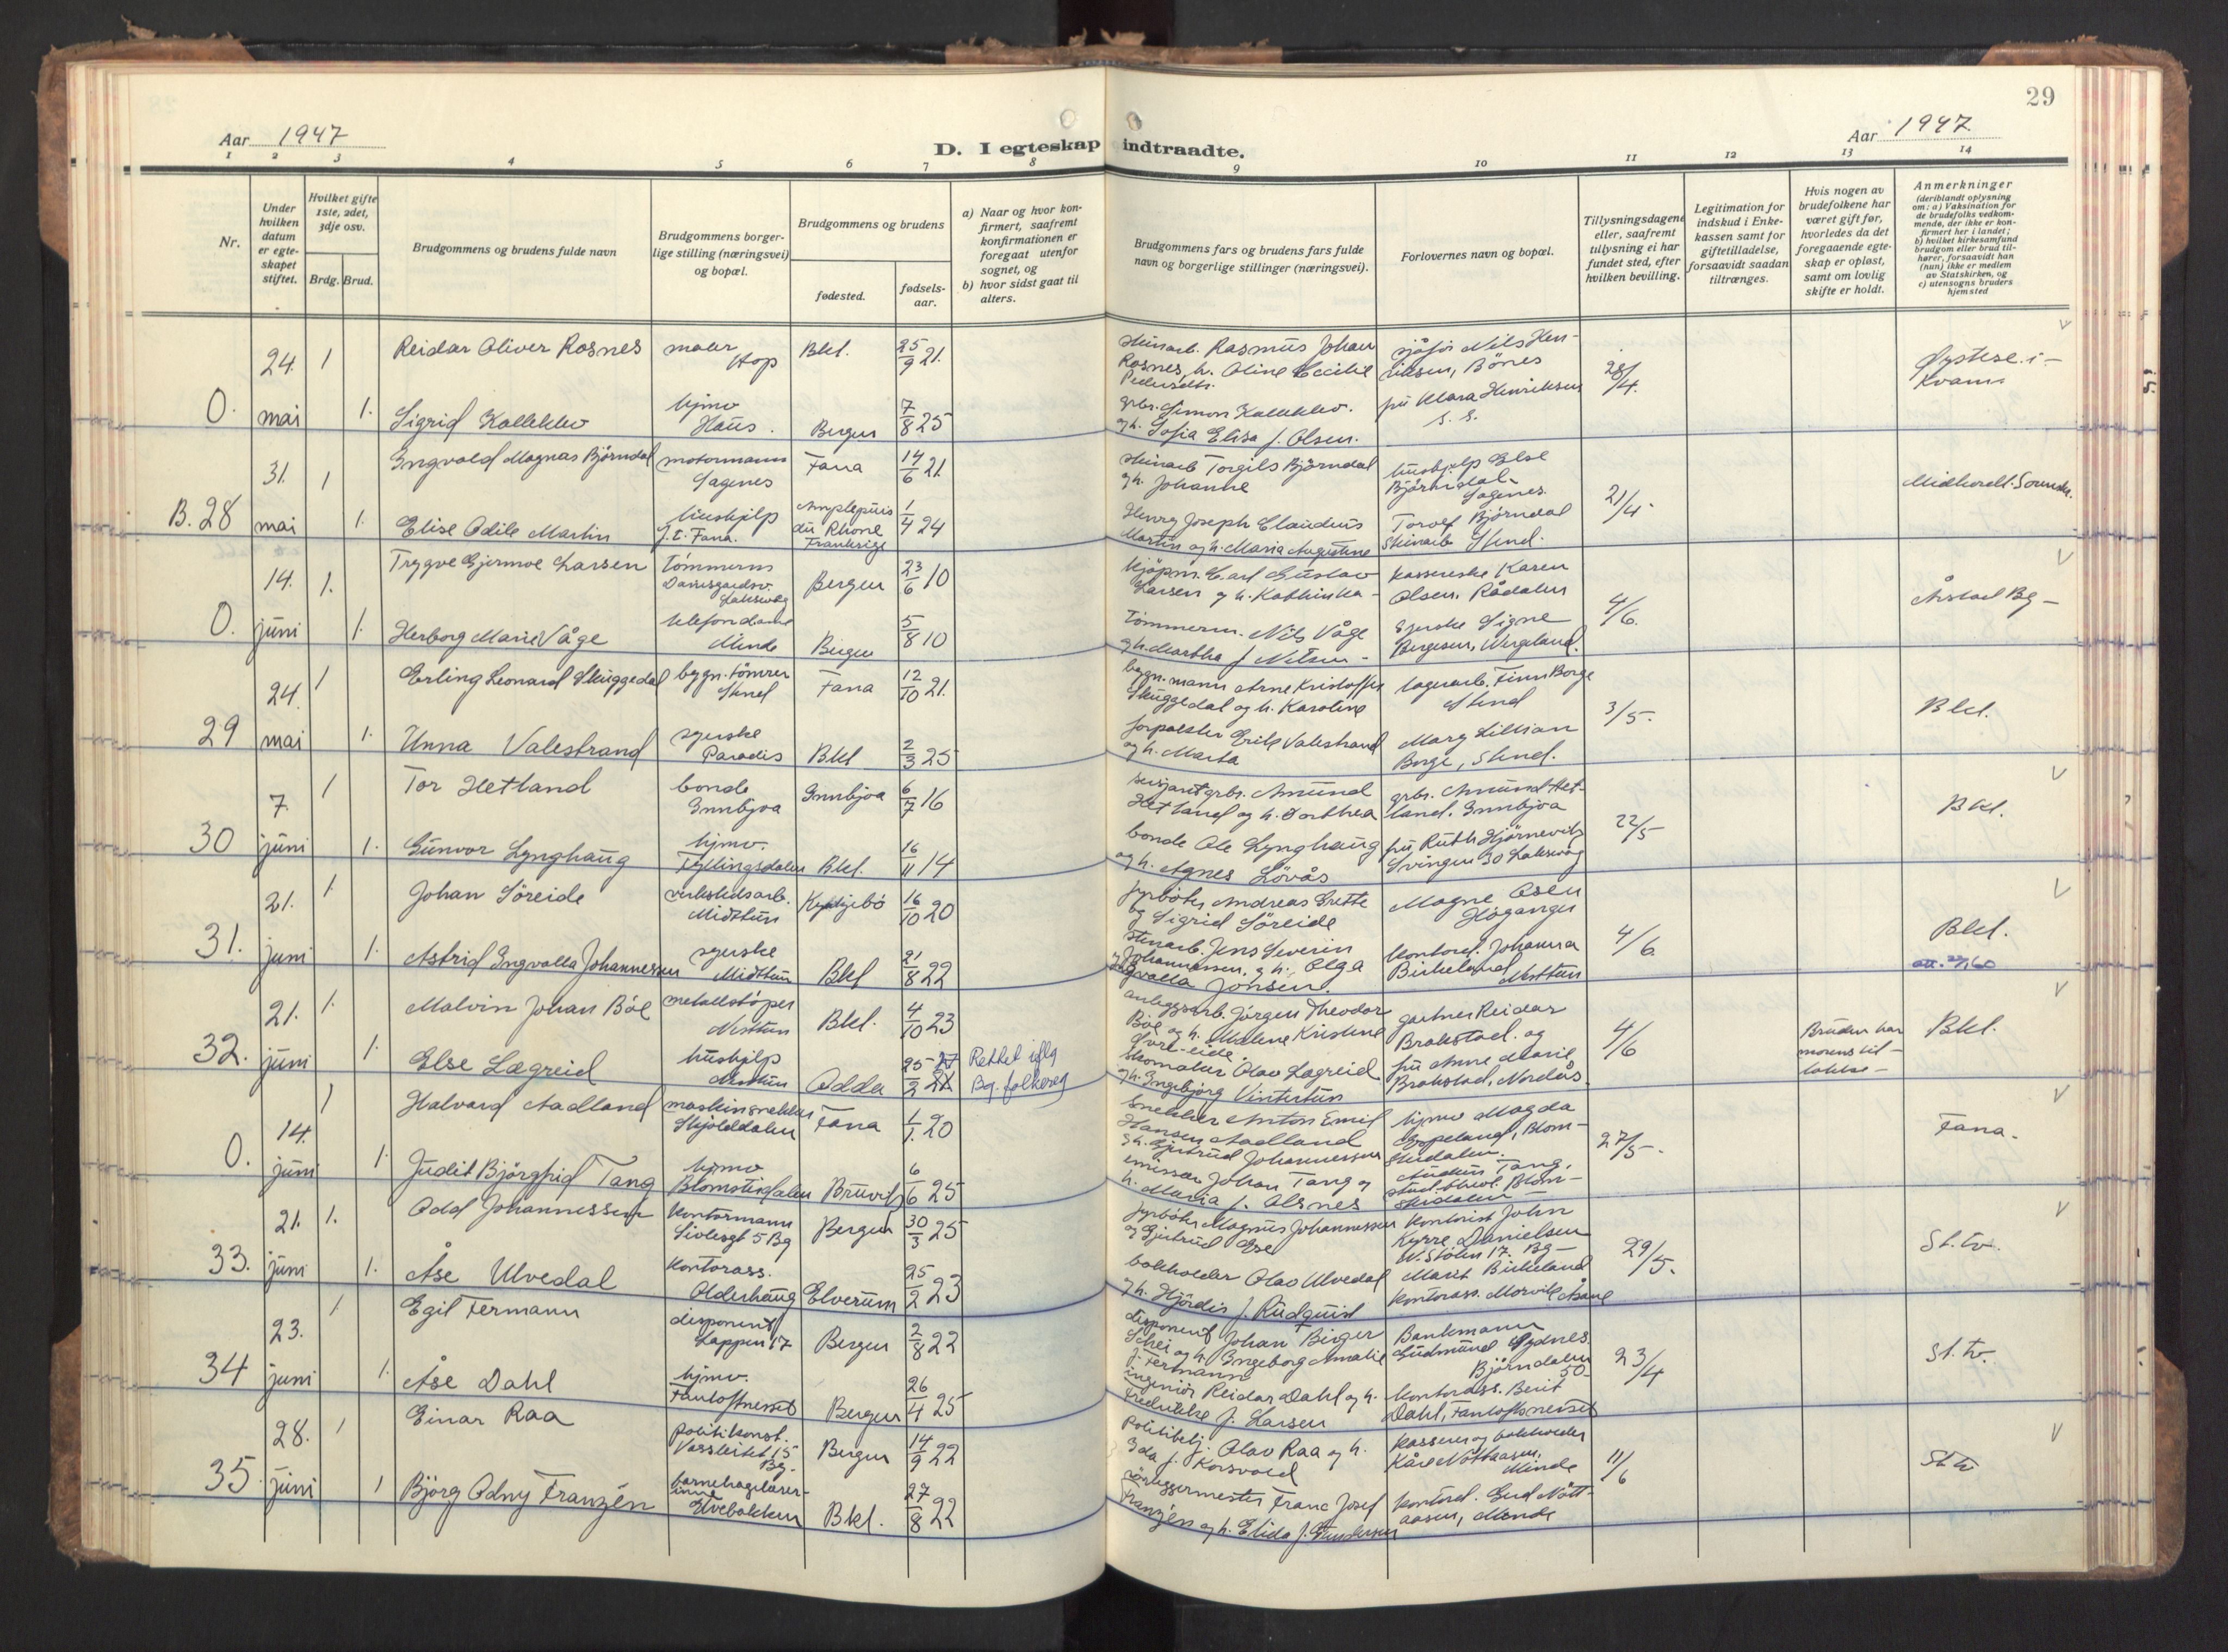 29
Aar 1947
D. I egteskap indtraadte.
Aar 1947
1 2 3 4 5 6 7 8 9 10 11 12 13 14
Nr.
Under hvilken datum er egteskapet stiftet.
Hvilket gifte 1ste, 2det, 3dje osv.
Brdg. Brud.
Brudgommens og brudens fulde navn
Brudgommens borger-
lige stilling (næringsvei)
og bopæl.
Brudgommens og brudens
fødested.
fødsels-
aar.
a) Naar og hvor kon-
firmert, saafremt
konfirmationen er
foregaat utenfor
sognet, og
b) hvor sidst gaat til
alters.
Brudgommens fars og brudens fars fulde
navn og borgerlige stillinger (næringsvei).
Forlovernes navn og bopæl.
Tillysningsdagene
eller, saafremt
tillysning ei har
fundet sted, efter
hvilken bevilling.
Legitimation for
indskud i Enke-
kassen samt for
giftetilladelse,
forsaavidt saadan
tiltrænges.
Hvis nogen av
brudefolkene har
været gift før,
hvorledes da det
foregaaende egte-
skap er opløst,
samt om lovlig
skifte er holdt.
Anmerkninger
(deriblandt oplysning
om: a) Vaksination for
de brudefolks vedkom-
mende, der ikke er kon-
firmert her i landet;
b) hvilket kirkesamfund
brudgom eller brud til-
hører, forsaavidt han
(hun) ikke er medlem
av Statskirken, og
c) utensogns bruders
hjemsted
24. 1 Reidar Oliver Rosnes maler Hop Bkl. 25/9 21.
Rasmus Johan Rosnes, h. Oline Cecilie
sjåfør Nils Hen-
riksen, Bönes
28/4.
Øystese i
Kvam
O. mai 1. Sigrid Kalleklev hjmv Haus. Bergen 7/8 25
grbr. Simon Kalleklev.
og h. Sofia Elisa f. Olsen.
fru Klara Henriksen
s. s.
31. 1 Ingvald Magnus Björndal motormann Fana 14/6 21.
Torgils Björndal
og h. Johanne
hushjelp Else
Björndal
21/4.
B. 28 mai 1. Elise Odile Martin hushjelp f. t. Fana. Amplepuis du Rhone Frankrige 1/4 24
Henry Joseph Claudius
Martin og h. Maria Augustine
Torolf Björndal
Stend.
14. 1. Trygve Gjermoe Larsen tömmerm Damsgaardsv. Laksevåg Bergen 23/6 10
kjöpm. Carl Gustav
Larsen og h. Kathinka
kassererske Karen
Olsen, Rådalen
4/6.
Årstad Bg
O. juni 1. Herborg Marie Våge telefondame Minde Bergen 5/8 10
tömmerm. Nils Våge
og h. Martha f. Nilsen
syerske Signe
Bergesen, Wergeland.
24. 1 Erling Leonard Skuggedal bygn. tömrer Stend Fana 12/10 21.
bygn. mann Arne Kristoffer
Skuggedal og h. Karoline
lagerarb. Finn Borge
Stend
3/5.
Bkl.
29 mai 1. Unna Valestrand syerske Paradis Bkl 2/3 25
forpakter Erik Valestrand
og h. Marta
Mary Lillian
Borge, Stend.
7. 1 Tor Hetland bonde Innbjoa Innbjoa 6/7 16
grbr. Amund
Hetland og h. Dorthea
grbr. Amund Het-
land. Innbjoa
22/5
Bkl.
30 juni 1. Gunvor Lynghaug hjmv. Fyllingsdalen Bkl. 16/11 14
bonde Ole Lynghaug
og h. Agnes Lövås
fru Ruth Hjörnevik
Svingen 30 Laksevåg
21. 1. Johan Söreide verkstedsarb. Midttun Kyrkjebö 16/10 20
fyrböter Andreas Grette
og Sigrid Söreide
Magne Osen
Höyanger
4/6.
Bkl.
31. juni 1. Astrid Ingvalla Johannessen syerske Midttun Bkl 21/8 22
stenarb. Jens Severin
Johannessen, og h. Olga
Ingvalla Jonsen.
kontord. Johanna
Birkeland
Nesttun
21. 1. Malvin Johan Böe metallstöper Nesttun Bkl. 4/10 23
anleggsarb. Jörgen Theodor
Böe og h. Malene Kristine
gartner Reidar
Brakstad. og
4/6
Bruden har
morens til-
latelse
Bkl.
32. juni 1. Else Lægreid hushjelp Nesttun Odda 25/2 27
Rettet iflg
Bg. folkereg
Olav Lægreid
og h. Ingebjörg Vintertun
fru Anne Marie
Brakstad, Nordås
14. 1 Halvard Aadland maskinsnekker Skjolddalen Fana 1/1. 20
snekker Anton Emil
Hansen Aadland
og h. Gjertrud Johannessen
hjmv Magda
Espeland, Blom-
sterdalen.
27/5.
Fana.
O. juni 1. Judit Björghild Tang hjmv Blomsterdalen Bruvik 6/6 25
emissær Johan Tang og
h. Maria f. Alsnes
Audun Tang,
stud. theol. Blom-
sterdalen
21. 1. Odd Johannessen kontormann Bergen 30/3 25
fyrböter Magnus Johannessen
og Gjertrud
kontorist John
Kyrre Danielsen
29/5.
St. tv.
33. juni 1. Åse Ulvedal kontorass. Olderhaug Elverum 25/2 23
bokholder Olav Ulvedal
og h. Hjördis f. Rudquist
Marit Birkeland
kontorass. Morvik Åsane
23. 1. Egil Fermann disponent Lappen 17 Bergen 2/8 22
disponent Johan Birger
Schei og h. Ingeborg Amalie
f. Fermann
Bankmann
Gudmund Sydnes
Björndalen
50
23/4
St. tv.
34 juni 1. Åse Dahl hjmv. Fantoftneset Bergen 26/4 25
ingeniör Reidar Dahl og h.
Fredrikke f. Larsen
kontorass. Berit
Dahl, Fantoftneset
28. 1 Einar Raa politikonst. Bergen 14/9 22
politibetj. Olav Raa og h.
Ida f. Korsvold
kasserer og bokholder
Kåre Nöttaasen,
Minde
11/6
St. tv
35. juni 1 Björg Odny Franzén barnehagelærer-
inne Bkl. 27/8 22
rörleggermester Franc Josef
Franzén og h. Elida f. Gundersen
kontord. Gud Nött-
aasen, Minde